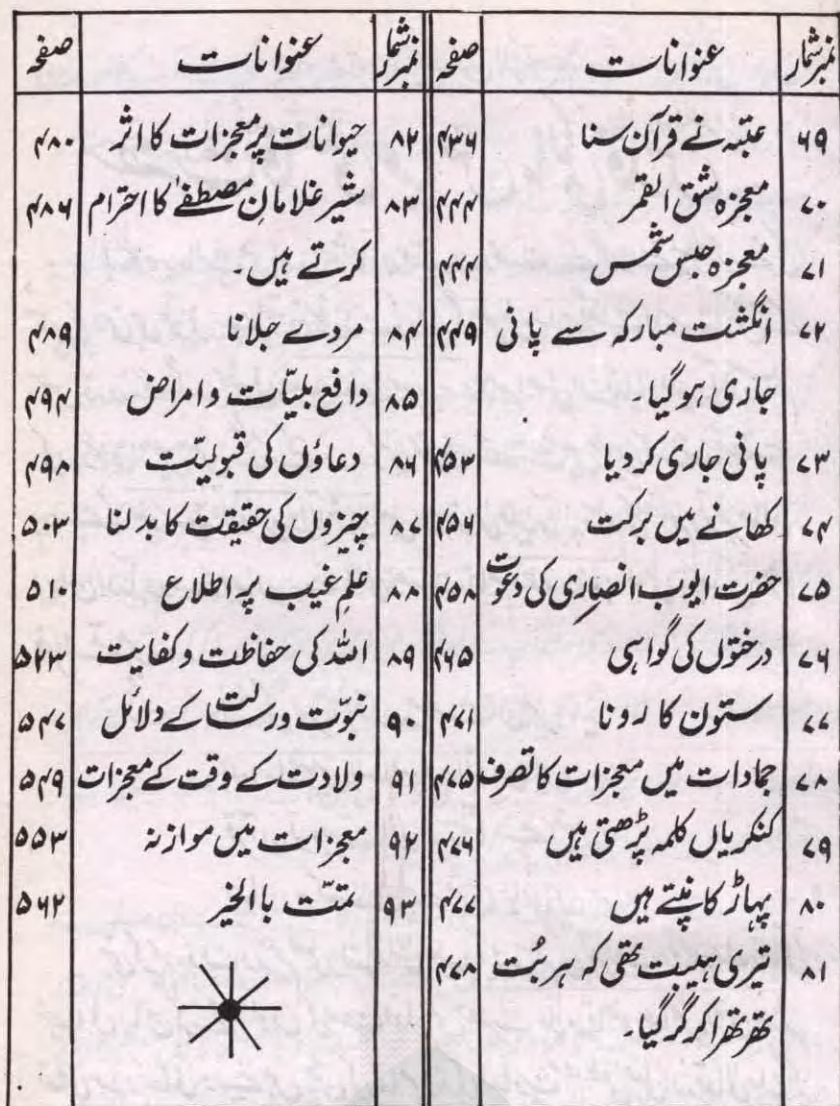 نمبر شمار عنوانات صفحہ
۶۹ عتبہ نے قرآن سنا ۴۳۶
۷۰ معجزہ شق القمر ۴۴۴
۷۱ معجزہ حبس شمس ۴۴۴
۷۲ انگشت مبارکہ سے پانی ۴۴۹
جاری ہوگیا۔
۷۳ پانی جاری کردیا ۴۵۳
۷۴ کھانے میں برکت ۴۵۶
۷۵ حضرت ایوب انصاری کی دعوت ۴۵۸
۷۶ درختوں کی گواہی ۴۶۵
۷۷ ستون کا رونا ۴۷۱
۷۸ جمادات میں معجزات کا تصرف ۴۷۵
۷۹ کنکریاں کلمہ پڑھتی ہیں ۴۷۶
۸۰ پہاڑ کانپتے ہیں ۴۷۷
۸۱ تیری ہیبت تھی کہ ہر بُت ۴۷۸
تھر تھرا کر گر گیا۔
نمبر شمار عنوانات صفحہ
۸۲ حیوانات پر معجزات کا اثر ۴۸۰
۸۳ شیر غلامانِ مصطفےٰ کا احترام ۴۸۶
کرتے ہیں۔
۸۴ مردے جلانا ۴۸۹
۸۵ دافع بلیّات و امراض ۴۹۴
۸۶ دعاؤں کی قبولیّت ۴۹۸
۸۷ چیزوں کی حقیقت کا بدلنا ۵۰۳
۸۸ علمِ غیب پر اطلاع ۵۱۰
۸۹ اللہ کی حفاظت و کفایت ۵۲۳
۹۰ نبوّت ورسالت کے دلائل ۵۴۷
۹۱ ولادت کے وقت کے معجزات ۵۴۹
۹۲ معجزات میں موازنہ ۵۵۳
۹۳ تمتّت باالخیر ۵۶۲